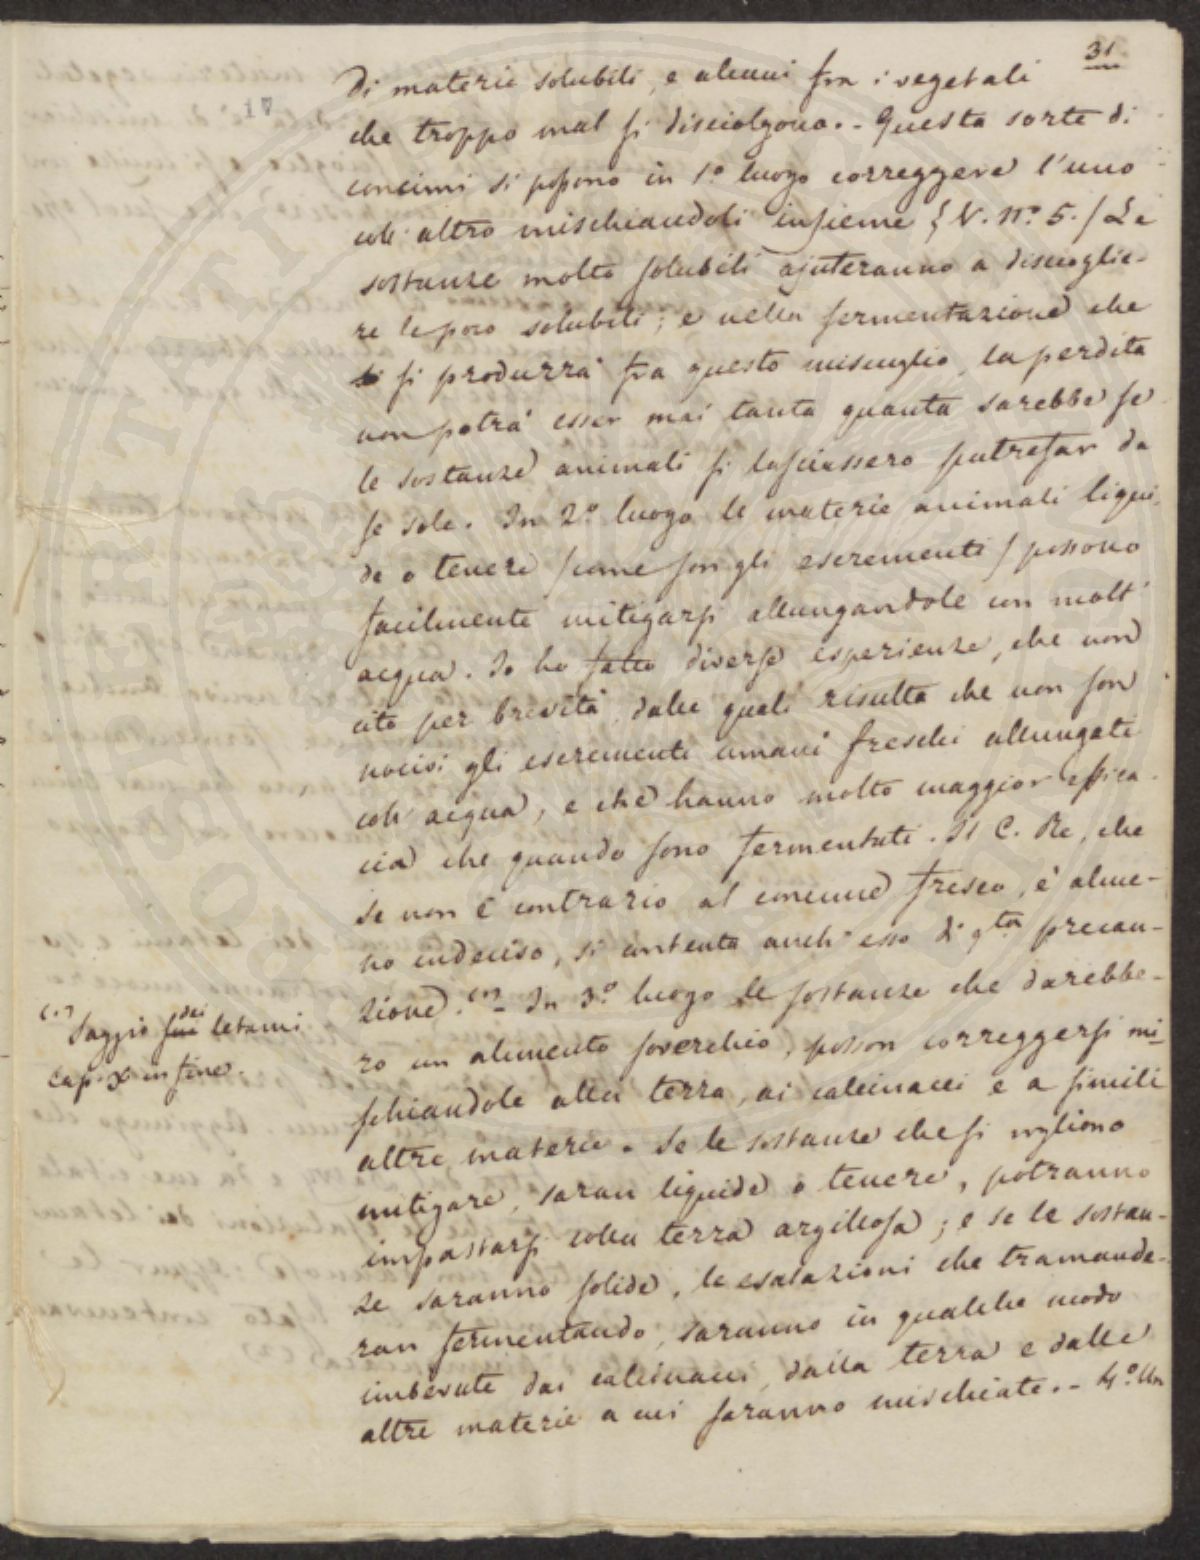 31.
17
di materie solubili, e alcuni fra i vegetali
che troppo mal si disciolgono. - Questa sorte di
concimi si possono in 1º luogo correggere l'uno
coll'altro mischiandoli insieme (V. nº 5.) Le
sostanze molto solubili ajuteranno a discioglie-
re le poco solubili; e nella fermentazione che
si produrrà fra questo miscuglio, la perdita
non potrà esser mai tanta quanta sarebbe se
le sostanze animali si lasciassero putrefar da
se sole. In 2º luogo le materie animali liqui-
de o tenere (come son gli escrementi) possono
facilmente mitigarsi allungandole con molt'
acqua. Io ho fatto diverse esperienze, che non
cito per brevità, dalle quali risulta che non son
nocivi gli escrementi umani freschi allungati
coll'acqua, e che hanno molto maggior effica-
cia che quando sono fermentati. Il C. Re, che
se non è contrario al concime fresco, è alme-
no indeciso, si contenta anch'esso di qta precau-
zione. (1) - In 3º luogo le sostanze che darebbe-
ro un alimento soverchio, posson correggersi mi-
schiandole alla terra, ai calcinacci e a simili
altre materie. Se le sostanze che si vogliono
mitigare, saran liquide o tenere, potranno
impastarsi colla terra argillosa; e se le sostan-
ze saranno solide, le esalazioni che tramande-
ran fermentando, saranno in qualche modo
imbevute dai calcinacci, dalla terra e dalle
altre materie a cui saranno mischiate. - 4º. Un
(1)
Saggio dei letami
cap. X in fine.